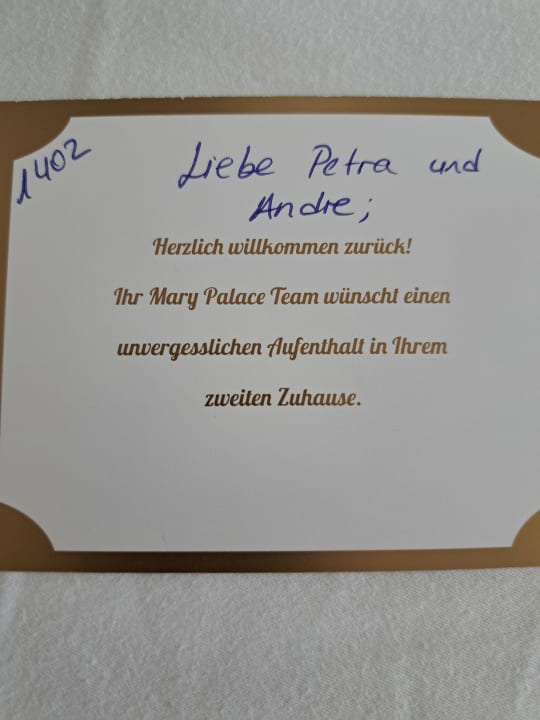 1402
Liebe Petra und
Andre;
Herzlich willkommen zurück!
Ihr Mary Palace Team wünscht einen
unvergesslichen Aufenthalt in Ihrem
zweiten Zuhause.